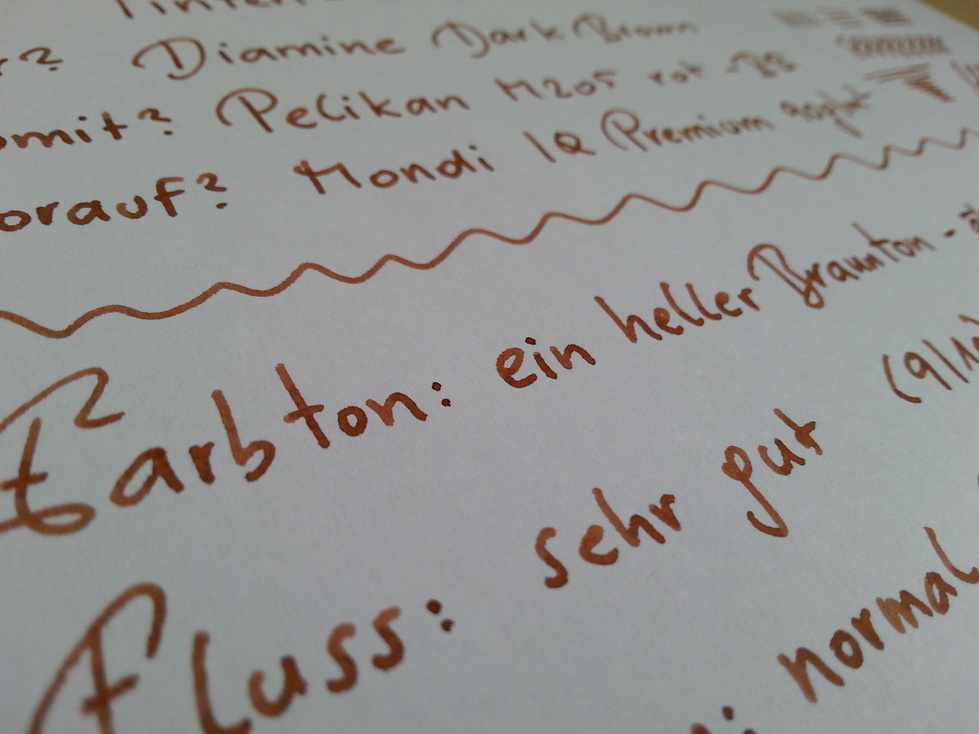 r? Diamine Dark Brown
omit? Pelikan M205 rot - BB
orauf? Mondi IQ Premium 80g/m²
Farbton: ein heller Braunton -
Fluss: sehr gut (9/10
normal